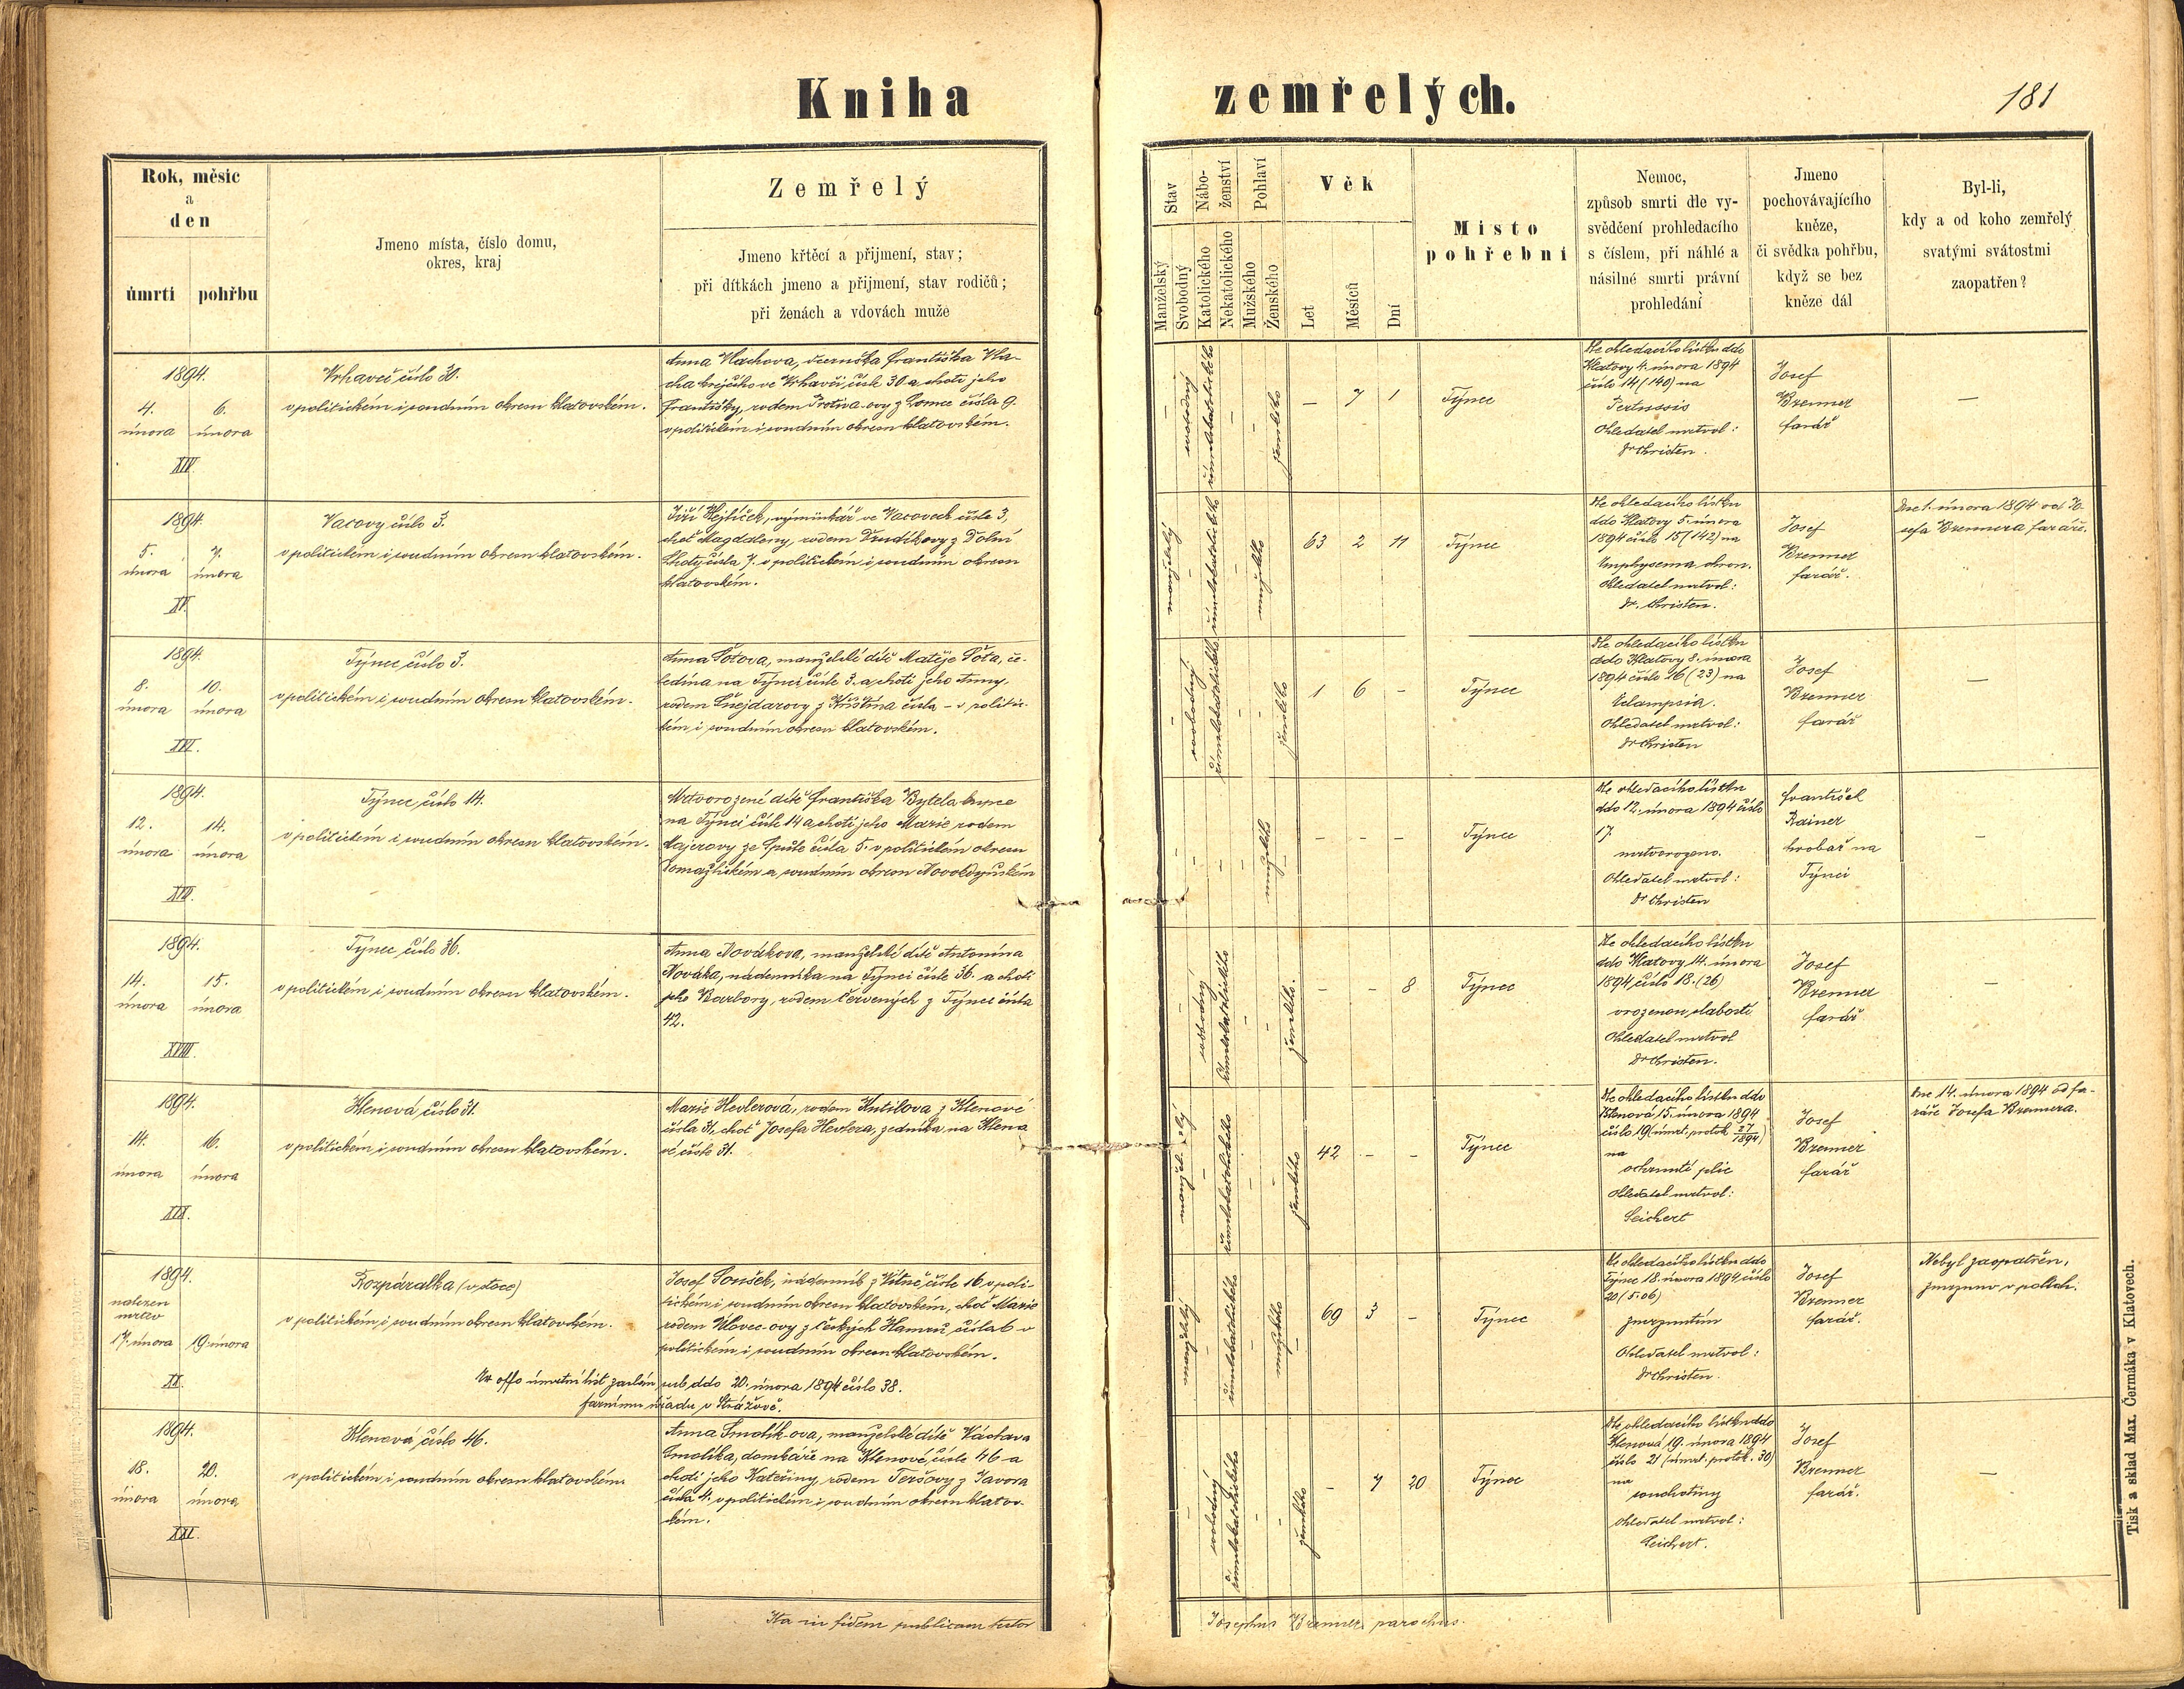 Kniha zemřelých.
181
Rok, měsíc
a
den
úmrtí
pohřbu
Jmeno místa, číslo domu,
okres, kraj
Zemřelý
Jmeno křtěcí a přijmení, stav;
při dítkách jmeno a přijmení, stav rodičů;
při ženách a vdovách muže
Stav
Manželský
Svobodný
Nábo-
ženství
Katolického
Nekatolického
Pohlaví
Mužského
Ženského
Věk
Let
Měsíců
Dní
Místo
pohřební
Nemoc,
způsob smrti dle vy-
svědčení prohledacího
s číslem, při náhlé a
násilné smrti právní
prohledání
Jmeno
pochovávajícího
kněze,
či svědka pohřbu,
když se bez
kněze dál
Byl-li,
kdy a od koho zemřelý
svatými svátostmi
zaopatřen?
1894.
4. února
6. února
XIV.
Vrhaveč číslo 30.
v politickém i soudním okresu klatovském.
Anna Vlachova, dceruška Františka Vla-
cha krejčího ve Vrhavči čísle 30. a choti jeho
Františky, rodem Protiva-ovy z Lomce čísla 9.
v politickém i soudním okresu klatovském.
–
svobodný
římskokatolického
–
–
ženského
– 7 1
Týnec
Dle ohledacího lístku ddo
Klatovy 4. února 1894
číslo 14 (140) na
Pertussis
Ohledatel mrtvol:
Dr Christen.
Josef
Brenner
farář
–
1894.
5. února
7. února
XV.
Vacovy číslo 3.
v politickém i soudním okresu klatovském.
Jiří Hejtíček, výminkář ve Vacovech čísle 3,
choť Magdaleny, rodem Drudíkovy z Dolní
Lhoty čísla 7. v politickém i soudním okresu
klatovském.
manželský
–
římskokatolického
–
mužského
–
63 2 11
Týnec
Dle ohledacího lístku
ddo Klatovy 5. února
1894 číslo 15 (142) na
Emphysema chron.
Ohledatel mrtvol:
Dr. Christen.
Josef
Brenner
farář.
Dne 1. února 1894 od Jo-
sefa Brennera faráře.
1894.
8. února
10. února
XVI.
Týnec číslo 3.
v politickém i soudním okresu klatovském.
Anna Šotova, manželské dítě Matěje Šota, če-
ledína na Týnci čísle 3. a choti jeho Anny,
rodem Šnejdarovy z Křištína čísla – v politic-
kém i soudním okresu klatovském.
–
svobodný
římskokatolického
–
–
ženského
1 6 –
Týnec
Dle ohledacího lístku
ddo Klatovy 8. února
1894 číslo 16 (23) na
Eclampsia.
Ohledatel mrtvol:
Dr Christen
Josef
Brenner
farář
–
1894.
12. února
14. února
XVII.
Týnec číslo 14.
v politickém i soudním okresu klatovském.
Mrtvorozené dítě Františka Bytela kupce
na Týnci čísle 14 a choti jeho Marie rodem
Majerovy ze Spůle čísla 5. v politickém okresu
Domažlickém a soudním okresu Novokdyňském
–
–
–
–
mužského
–
– – –
Týnec
Dle ohledacího lístku
ddo 12. února 1894 číslo
17.
mrtvorozeno.
Ohledatel mrtvol:
Dr Christen
František
Rainer
hrobař na
Týnci
–
1894.
14. února
15. února
XVIII.
Týnec číslo 36.
v politickém i soudním okresu klatovském.
Anna Novákova, manželské dítě Antonína
Nováka, nádenníka na Týnci čísle 36. a choti
jeho Barbory, rodem Červených z Týnce čísla
42.
–
svobodný
římskokatolického
–
–
ženského.
– – 8
Týnec
Dle ohledacího lístku
ddo Klatovy 14. února
1894 číslo 18. (26)
vrozenou slabostí
Ohledatel mrtvol
Dr Christen.
Josef
Brenner
farář
–
1894.
14. února
16. února
XIX.
Klenová číslo 31.
v politickém i soudním okresu klatovském.
Marie Hevlerová, rodem Kutilova z Klenové
čísla 31, choť Josefa Hevlera, zedníka na Kleno
vé čísle 31.
manžel-ský
–
římskokatolického
–
–
ženského
42 – –
Týnec
Dle ohledacího lístku ddo
Klenová 15. února 1894
číslo 19 (úmrt. protok. 27/1894)
na
ochrnutí plic
Ohledatel mrtvol:
Seichert
Josef
Brenner
farář
Dne 14. února 1894 od fa-
ráře Josefa Brennera.
1894.
nalezen
mrtev
17. února
19. února
XX.
Rozpáralka (v stoce)
v politickém i soudním okresu klatovském.
Josef Soušek, nádenník z Vítně čísle 16 v poli-
tickém i soudním okresu klatovském, choť Marie
rodem Vlovec-ovy z Českých Hamrů čísla 6 v
politickém i soudním okresu klatovském.
Ex offo úmrtní list zaslán sub ddo 20. února 1894 číslo 38.
farnímu úřadu v Strážově.
manželský
–
římskokatolického
–
mužského
–
69 3 –
Týnec
Dle ohledacího lístku ddo
Týnec 18. února 1894 číslo
20 (5.06)
zmrznutím
Ohledatel mrtvol:
Dr Christen.
Josef
Brenner
farář.
Nebyl zaopatřen,
zmrznuv v polích.
1894.
18. února
20. února
XXI.
Klenová číslo 46.
v politickém i soudním okresu klatovském
Anna Smolík-ova, manželské dítě Václava
Smolíka, domkáře na Klenové čísle 46 a
choti jeho Kateřiny, rodem Teršovy z Javora
čísla 4. v politickém i soudním okresu klatov-
ském.
–
svobodný
římskokatolického
–
–
ženského
– 7 20
Týnec
Dle ohledacího lístku ddo
Klenová 19. února 1894
číslo 21 (úmrt. protok. 30)
na
souchotiny
Ohledatel mrtvol:
Seichert.
Josef
Brenner
farář.
–
Ita in fidem publicam testor
Josephus Brenner parochus.
Tisk a sklad Max. Čermáka v Klatovech.